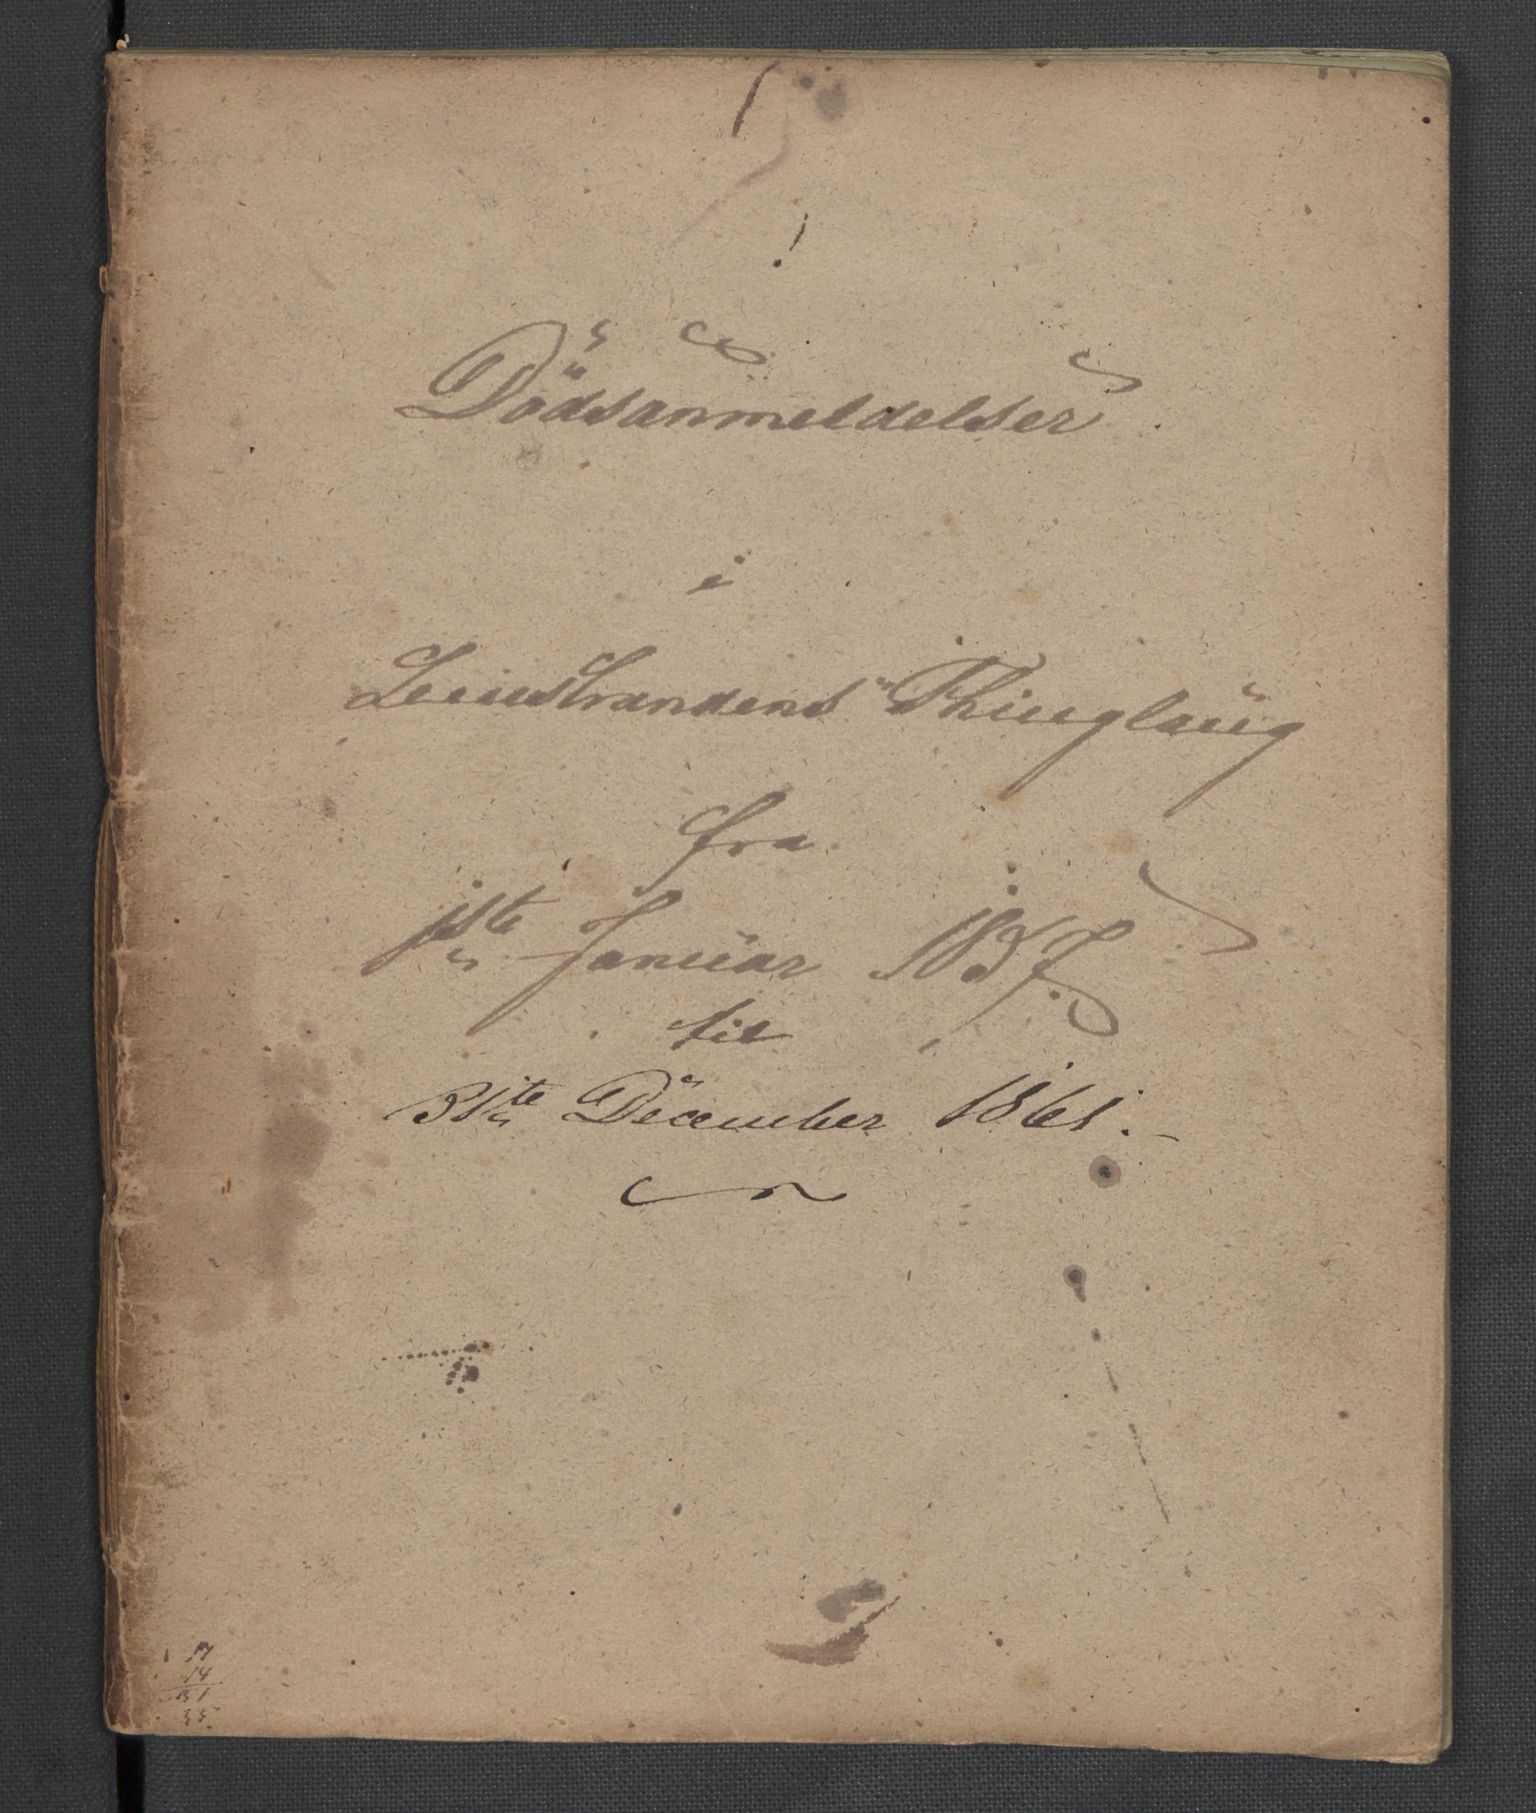 Dödsanmeldelser
i
Leinstrandens Thinglaüg
fra
1ste Januar 1857.
til
31te December 1861.
17
14
31
35